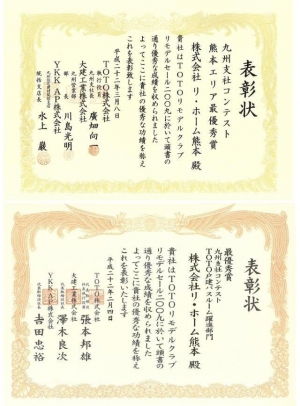 表彰状
九州支社コンテスト
熊本エリア最優秀賞
株式会社リ・ホーム熊本 殿
貴社はTOTOリモデルクラブ
リモデルセール二〇〇九に於いて頭書の
通り優秀な成績を収められました
よってここに貴社の優秀な功績を称え
これを表彰致します
平成二十二年三月八日
TOTO株式会社
執行役員
九州支社長
廣畑向一
大建工業株式会社
九州営業部
部長
川島光明
YKKAP株式会社
統括支店長
水上 巌
表彰状
最優秀賞
九州支社コンテスト
TOTO戸建バスルーム躍進部門
株式会社リ・ホーム熊本 殿
貴社はTOTOリモデルクラブ
リモデルセール二〇〇九に於いて頭書の
通り優秀な成績を収められました
よってここに貴社の優秀な功績を称え
これを表彰いたします
平成二十二年二月四日
TOTO株式会社
張本邦雄
大建工業株式会社
澤木良次
YKKAP株式会社
吉田忠裕